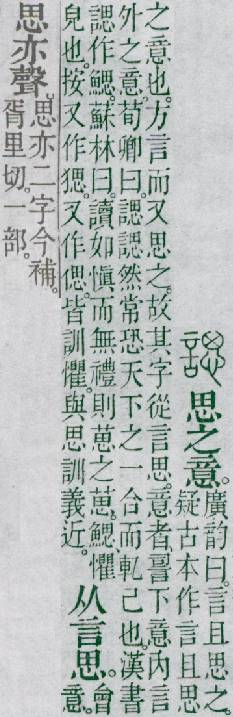 諰 思之意。
廣韵曰。言且思之。
疑古本作言且思
之意也。方言而又思之。故其字從言思。意者、䛐下意内言
外之意。荀卿曰。諰諰然常恐天下之一合而軋己也。漢書
諰作鰓。蘇林曰。讀如愼而無禮則葸之葸。鰓、懼
皃也。按又作𤟧。又作偲。皆訓懼。與思訓義近。
从言思。
會
意。
思亦聲。
思亦二字今補。
胥里切。一部。